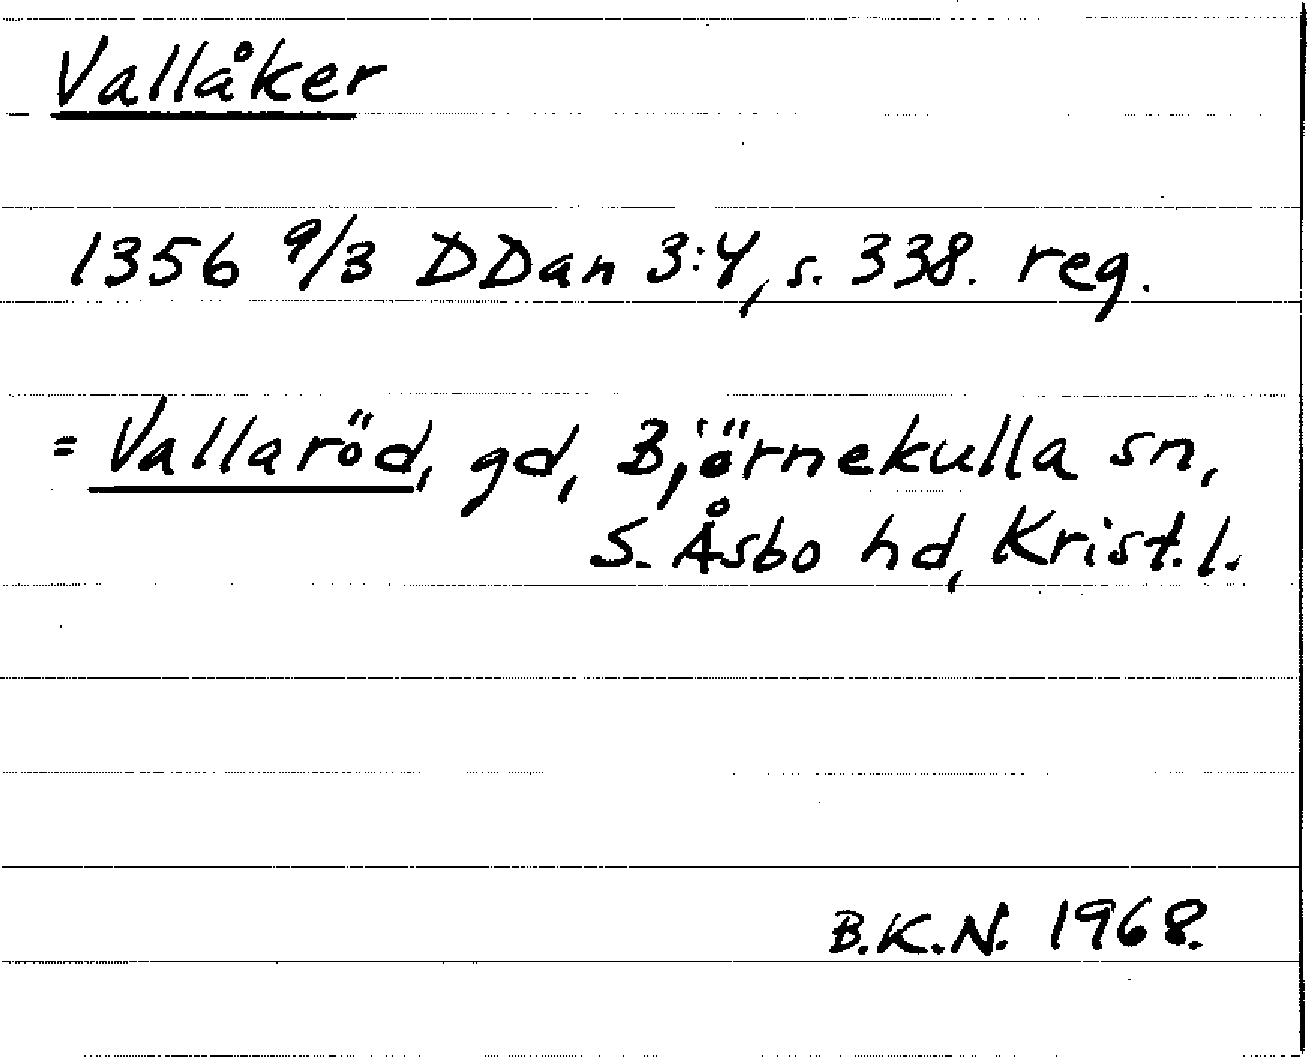 Vallåker
1356 9/3 DDan 3:4, s. 338. reg.
= Vallaröd, gd, Björnekulla sn,
S. Åsbo hd, Krist. l.
B.K.N. 1968.